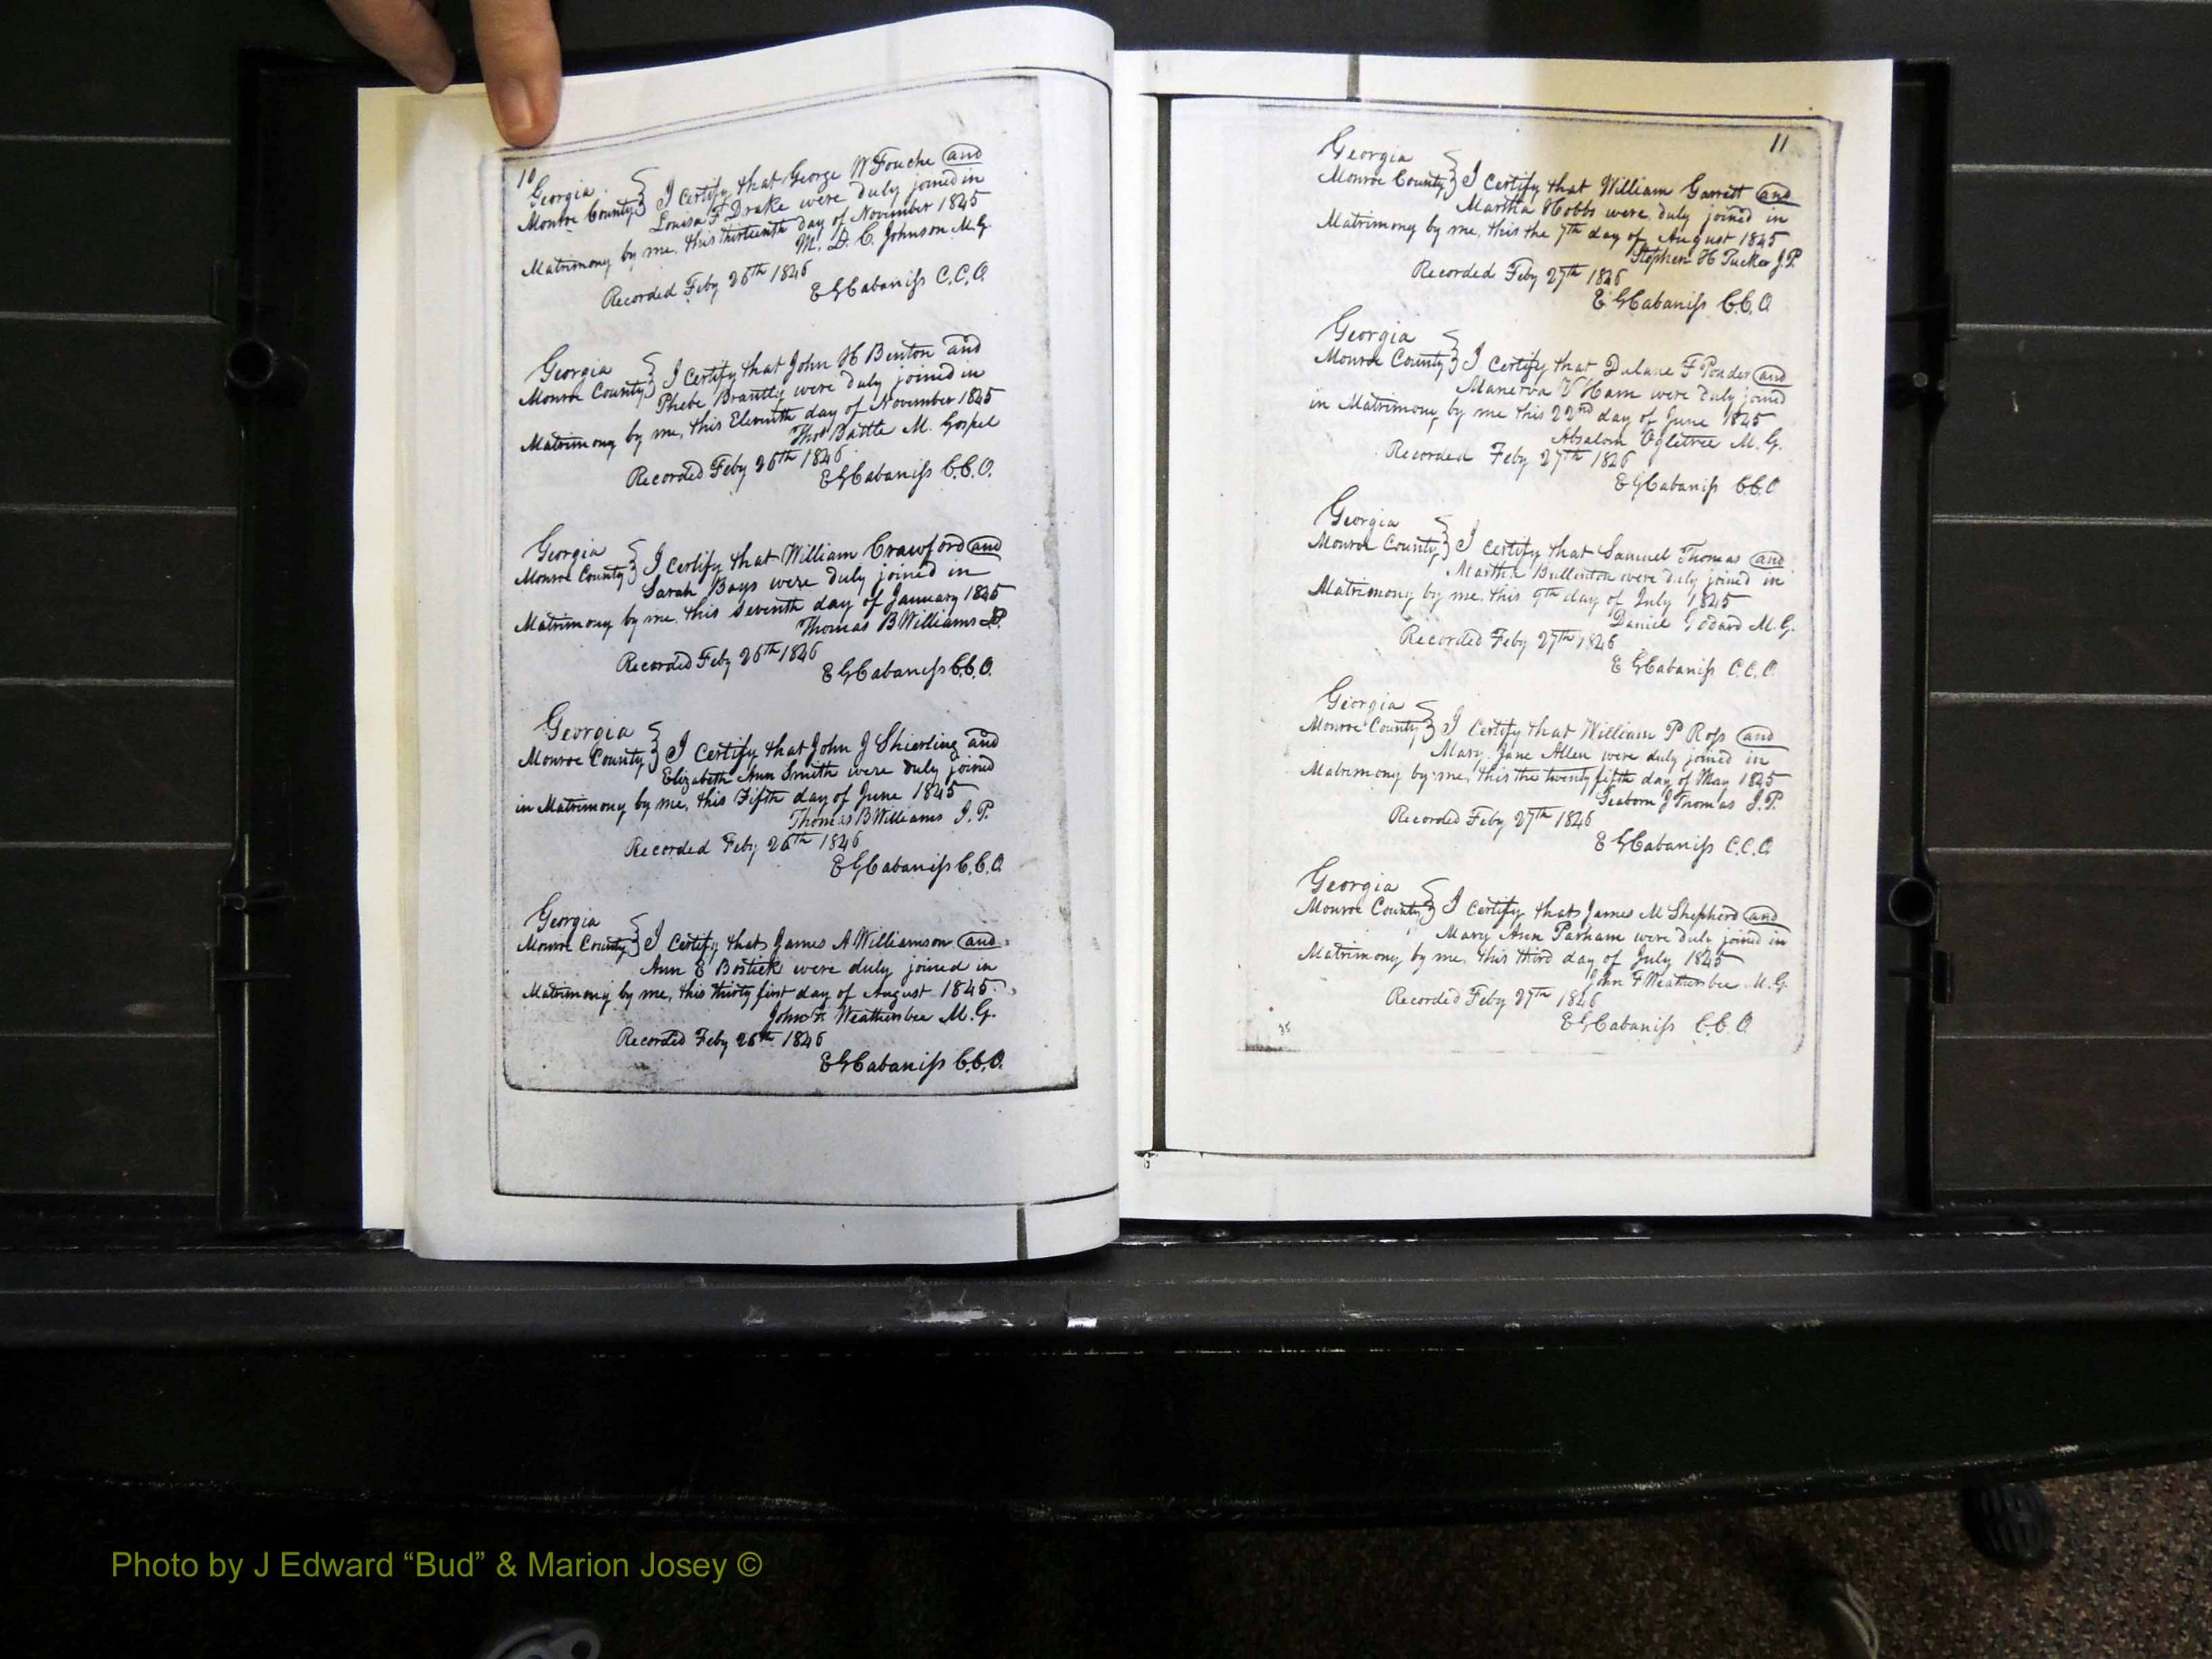 10
Georgia
Monroe County } I Certify that George W Fouche and
Louisa F Drake were duly joined in
Matrimony by me, this thirteenth day of November 1845
M. D. C. Johnson M.G.
Recorded Feby 26th 1846
E G Cabaniss C.C.O.
Georgia
Monroe County } I Certify that John H Benton and
Phebe Brantly were duly joined in
Matrimony by me, this Eleventh day of November 1845
Thos Battle M. Gospel
Recorded Feby 26th 1846
E G Cabaniss C.C.O.
Georgia
Monroe County } I Certify that William Crawford and
Sarah Bays were duly joined in
Matrimony by me, this Seventh day of January 1845
Thomas B Williams J.P.
Recorded Feby 26th 1846
E G Cabaniss C.C.O.
Georgia
Monroe County } I Certify that John J Shierling and
Elizabeth Ann Smith were duly joined
in Matrimony by me, this Fifth day of June 1845
Thomas B Williams J.P.
Recorded Feby 26th 1846
E G Cabaniss C.C.O.
Georgia
Monroe County } I Certify that James A Williamson and
Ann E Bostick were duly joined in
Matrimony by me, this thirty first day of August 1845
John F Weathersbee M.G.
Recorded Feby 26th 1846
E G Cabaniss C.C.O.
11
Georgia
Monroe County } I Certify that William Garrett and
Martha Hobbs were duly joined in
Matrimony by me, this the 7th day of August 1845
Stephen H Tucker J.P.
Recorded Feby 27th 1846
E G Cabaniss C.C.O
Georgia
Monroe County } I Certify that Dulane F Ponder and
Manerva V Ham were duly joined
in Matrimony by me this 22nd day of June 1845
Absalom Ogletree M.G.
Recorded Feby 27th 1846
E G Cabaniss C.C.O
Georgia
Monroe County } I Certify that Samuel Thomas and
Martha Bullinton were duly joined in
Matrimony by me, this 9th day of July 1845
Daniel Godard M.G.
Recorded Feby 27th 1846
E G Cabaniss C.C.O
Georgia
Monroe County } I Certify that William P Ross and
Mary Jane Allen were duly joined in
Matrimony by me, this the twenty fifth day of May 1845
Seaborn J Thomas J.P.
Recorded Feby 27th 1846
E G Cabaniss C.C.O
Georgia
Monroe County } I Certify that James M Shepherd and
Mary Ann Parham were duly joined in
Matrimony by me, this third day of July 1845
John F Weathersbee M.G.
Recorded Feby 27th 1846
E G Cabaniss C.C.O
Photo by J Edward “Bud” & Marion Josey ©